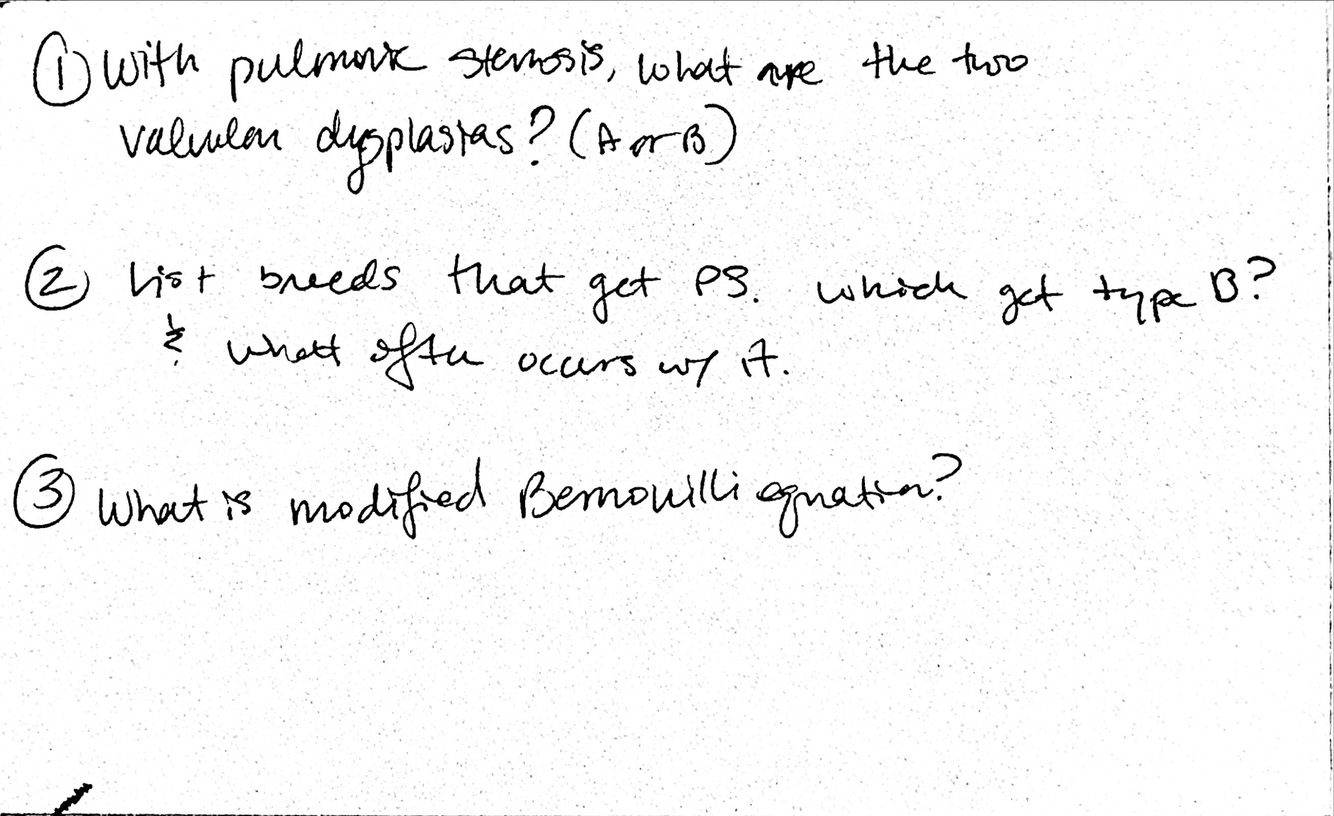 ① With pulmonic stenosis, what are the two
valvular dysplasias? (A or B)
② List breeds that get PS. Which get type B?
& what often occurs w/ it.
③ What is modified Bernouilli equation?